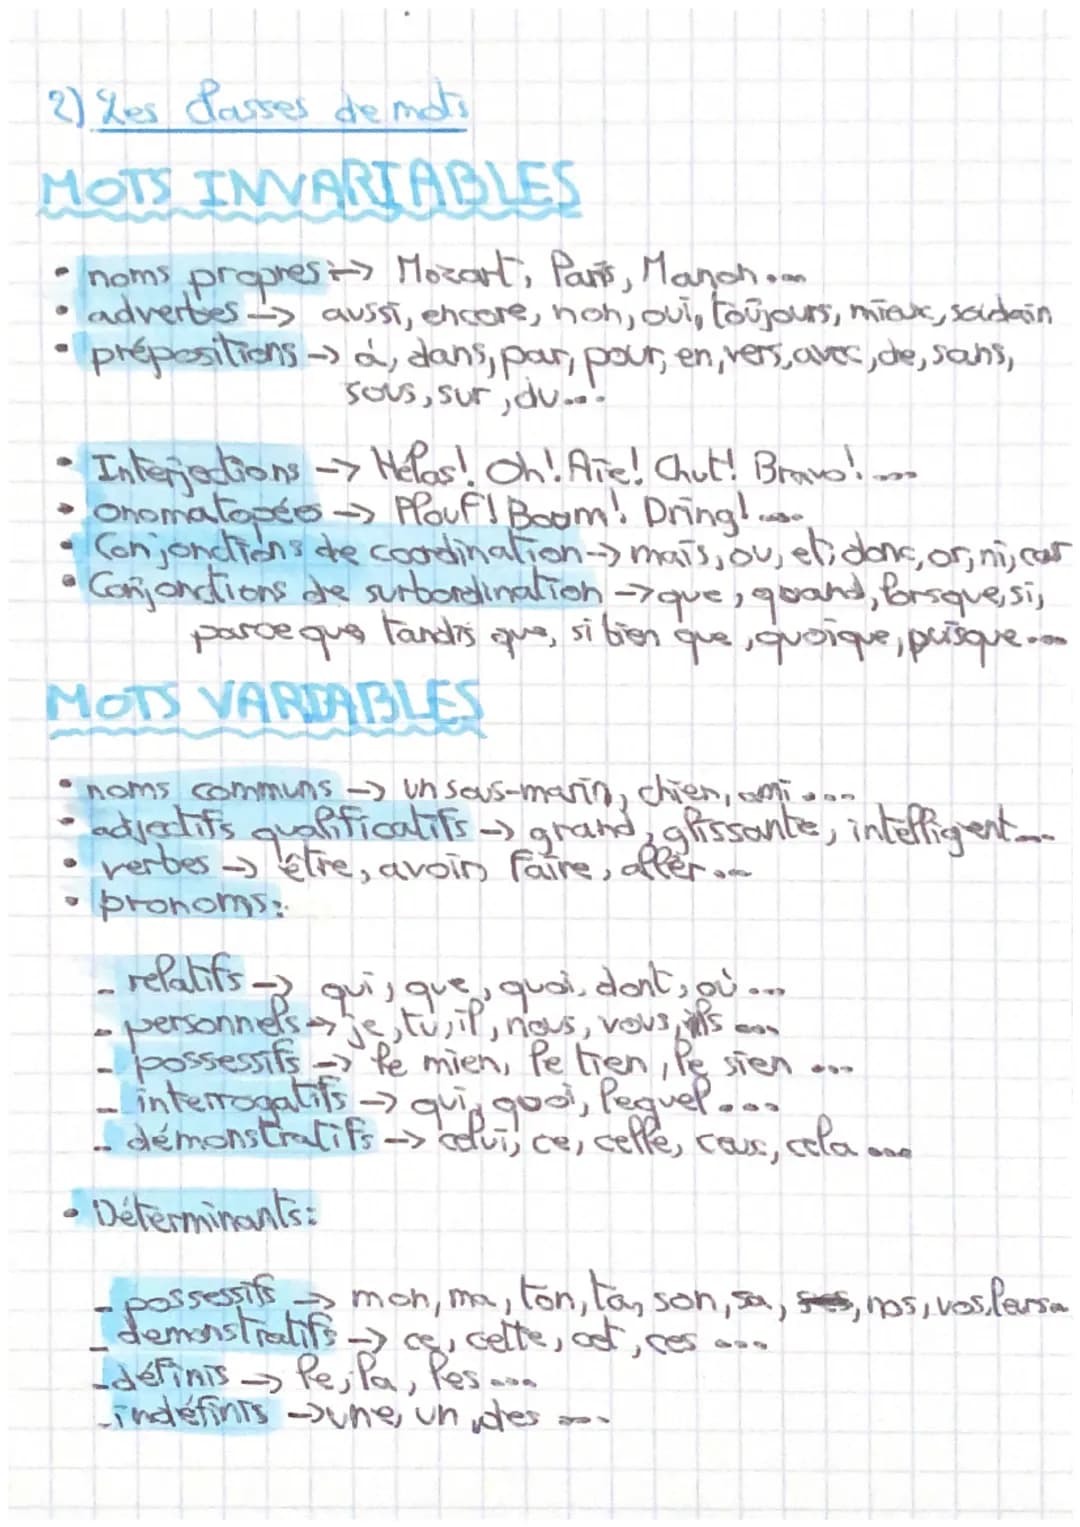 2) Les classes de mots
MOTS INVARIABLES
• noms propres → Mozart, Paris, Manon...
• adverbes → aussi, encore, non, oui, toujours, mieux, soudain
• prépositions → à, dans, par, pour, en, vers, avec, de, sans,
sous, sur, du...
• Interjections → Hélas! Oh! Aïe! Chut! Bravo! ...
• onomatopées → Plouf! Boom! Dring! ...
• Conjonctions de coordination → mais, ou, et, donc, or, ni, car
• Conjonctions de surbordination → que, quand, lorsque, si,
parce que, tandis que, si bien que, quoique, puisque...
MOTS VARIABLES
• noms communs → un sous-marin, chien, ami ...
• adjectifs qualificatifs → grand, glissante, intelligent...
• verbes → être, avoir, faire, aller...
• pronoms:
- relatifs → qui, que, quoi, dont, où ...
- personnels → je, tu, il, nous, vous, ils ...
- possessifs → le mien, le tien, le sien ...
- interrogatifs → qui, quoi, lequel...
- démonstratifs → celui, ce, celle, ceux, cela ...
• Déterminants:
- possessifs → mon, ma, ton, ta, son, sa, ses, nos, vos, leurs...
- demonstratifs → ce, cette, cet, ces ...
- définis → le, la, les ...
- indéfinis → une, un, des ...